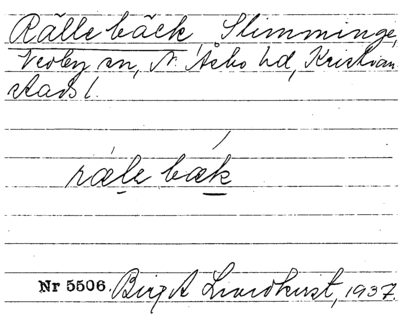 Rälle bäck, Slimminge,
Vedby sn, N. Åsbo hd, Kristian
stads l.
räle bæk
Nr 5506. Birgit Lindkvist, 1937.